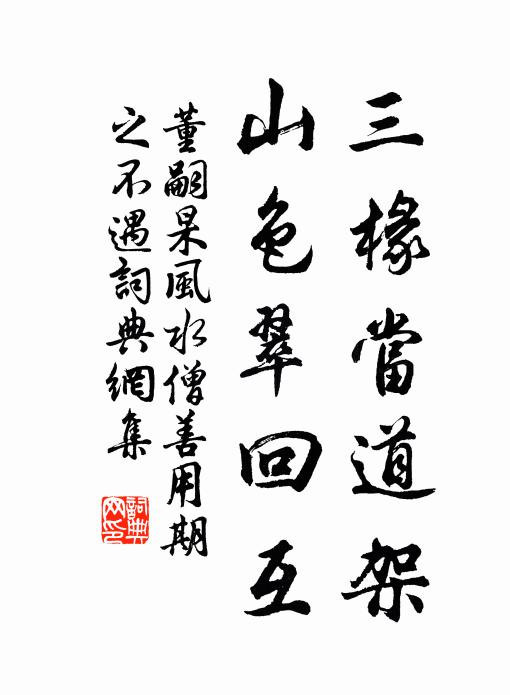 三椽當道架
山色翠回互
董嗣杲風水僧善用期
之不遇詞典網集
詞典
网印